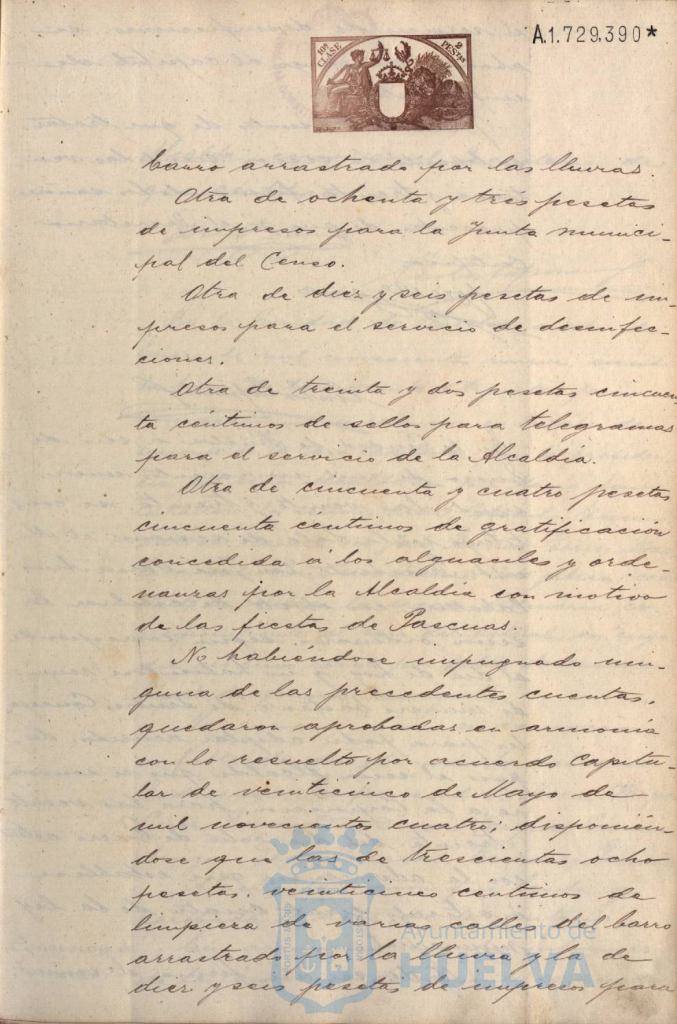 10ª CLASE
2 PESETAS
A.1.729,390*
barro arrastrado por las lluvias.
Otra de ochenta y tres pesetas
de impresos para la Junta munici-
pal del Censo.
Otra de diez y seis pesetas de im-
presos para el servicio de desinfec-
ciones.
Otra de treinta y dós pesetas cincuen-
ta céntimos de sellos para telegramas
para el servicio de la Alcaldía.
Otra de cincuenta y cuatro pesetas
cincuenta céntimos de gratificación
concedida á los alguaciles y orde-
nanzas por la Alcaldía con motivo
de las fiestas de Pascuas.
No habiéndose impugnado nin-
guna de las precedentes cuentas,
quedaron aprobadas en armonía
con lo resuelto por acuerdo capitu-
lar de veinticinco de Mayo de
mil novecientos cuatro; disponién-
dose que las de trescientas ocho
pesetas veinticinco céntimos de
limpieza de varias calles del barro
arrastrado por la lluvia y la de
diez y seis pesetas de impresos para
Ayuntamiento de
HUELVA